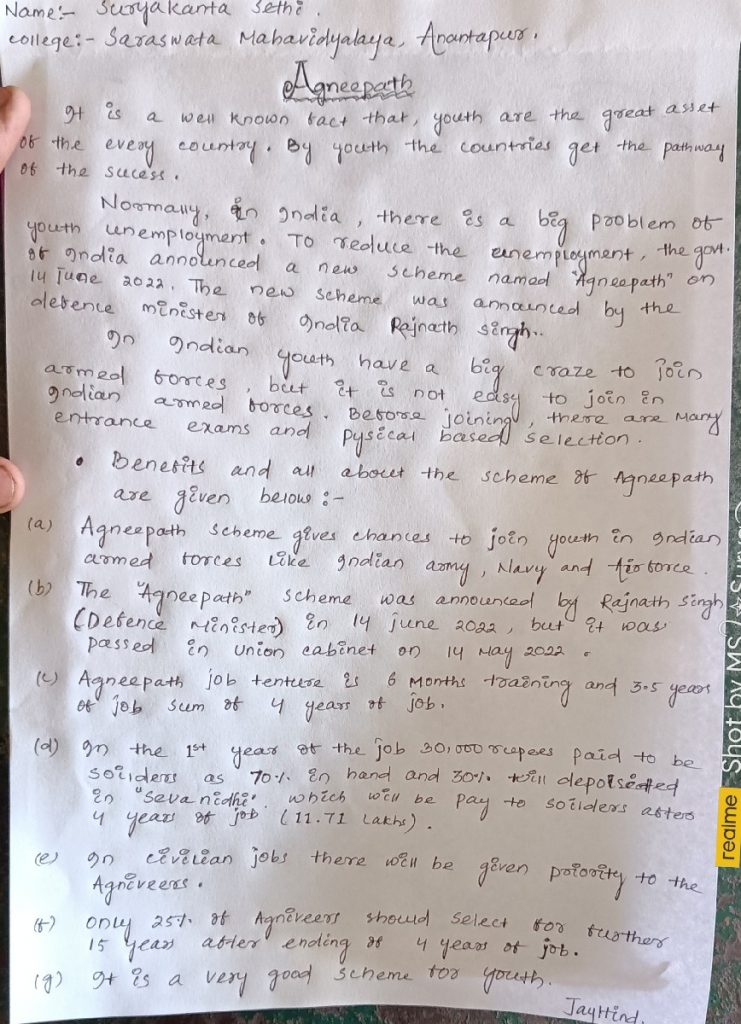 Name:- Suryakanta Sethi.
college:- Saraswata Mahavidyalaya, Anantapur.
Agneepath
It is a well known fact that, youth are the great asset
of the every country. By youth the countries get the pathway
of the sucess.
Normally, in India, there is a big problem of
youth unemployment. To reduce the unemployment, the govt.
of India announced a new scheme named "Agneepath" on
14 June 2022. The new scheme was announced by the
defence minister of India Rajnath Singh..
In Indian youth have a big craze to join
armed forces, but it is not easy to join in
Indian armed forces. Before joining, there are Many
entrance exams and pysical based selection.
• Benefits and all about the scheme of Agneepath
are given below :-
(a) Agneepath scheme gives chances to join youth in Indian
armed forces Like Indian army, Navy and Airforce.
(b) The "Agneepath" scheme was announced by Rajnath Singh
(Defence Minister) in 14 june 2022, but it was
passed in Union cabinet on 14 May 2022.
(c) Agneepath job tenture is 6 Months training and 3.5 years
of job sum of 4 years of job.
(d) In the 1st year of the job 30,000 rupees paid to be
soliders as 70% in hand and 30% will depoisited
in "Seva nidhi". which will be pay to soilders after
4 years of job (11.71 Lakhs).
(e) In civilian jobs there will be given priority to the
Agniveers.
(f) Only 25% of Agniveers should select for further
15 years after ending of 4 years of job.
(g) It is a very good scheme for youth.
JayHind.
realme Shot by MS